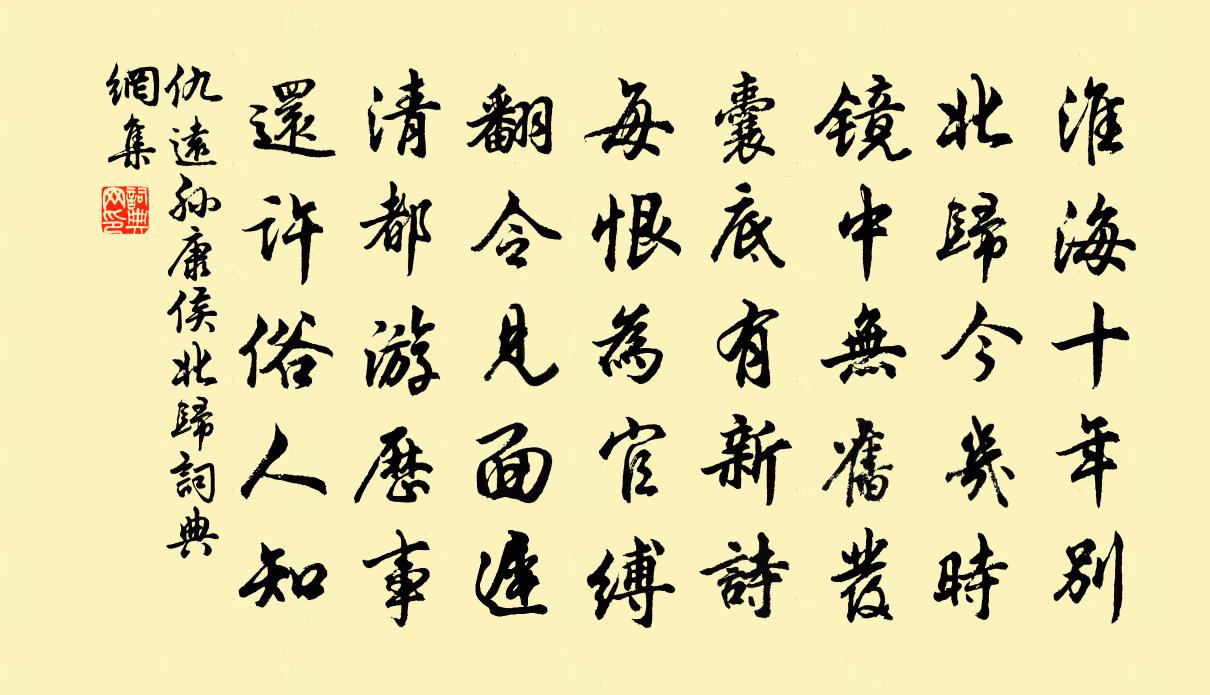 淮海十年別
北歸今幾時
鏡中無舊發
囊底有新詩
每恨為官縛
翻令見面遲
清都游歷事
還許俗人知
仇遠孫康侯北歸詞典
網集
詞典
网印